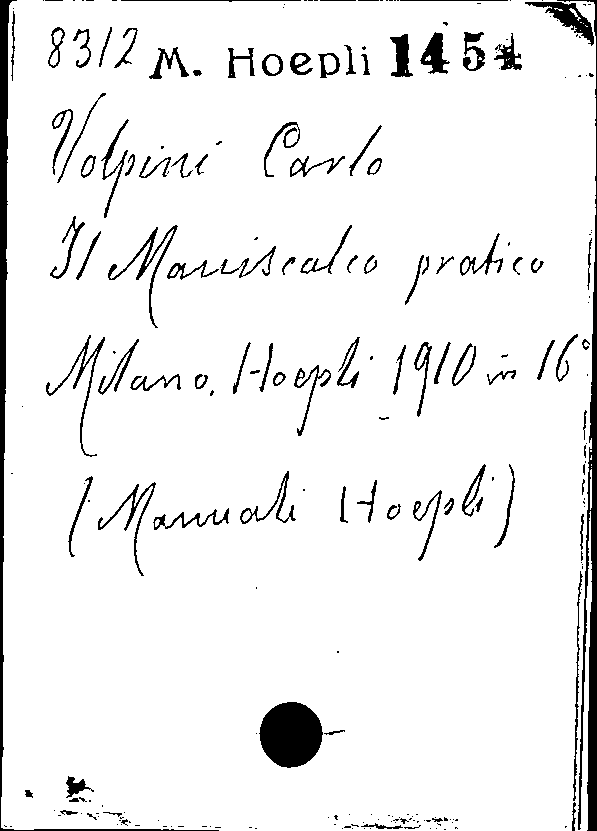 8312 M. Hoepli 1454
Volpini Carlo
Il Maniscalco pratico
Milano. Hoepli 1910 in 16°
(Manuali Hoepli)